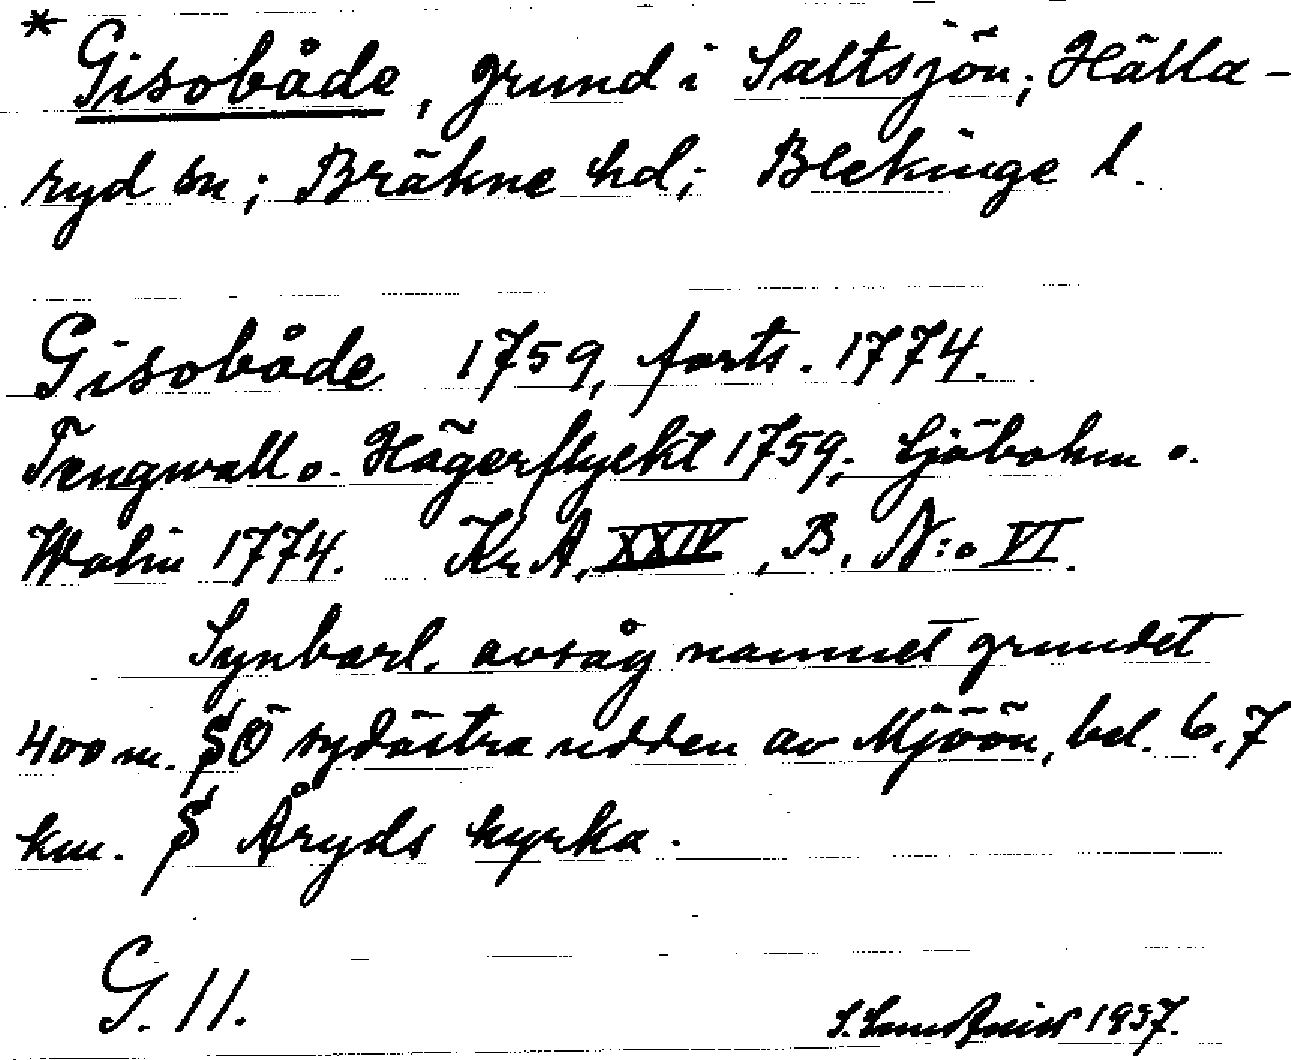 * Gisobåde, grund i Saltsjön; Hälla-
ryd sn; Bräkne hd; Blekinge l.
Gisobåde 1759, forts. 1774.
Tengwall o. Hägerflyckt 1759; Sjöbohm o.
Wahin 1774. Kr. A. XXIV, B, N:o VI.
Synbarl. avsåg namnet grundet
400 m. SÖ sydöstra udden av Mjöön, bel. 6,7
km. S Åryds kyrka.
G. 11.
1937.